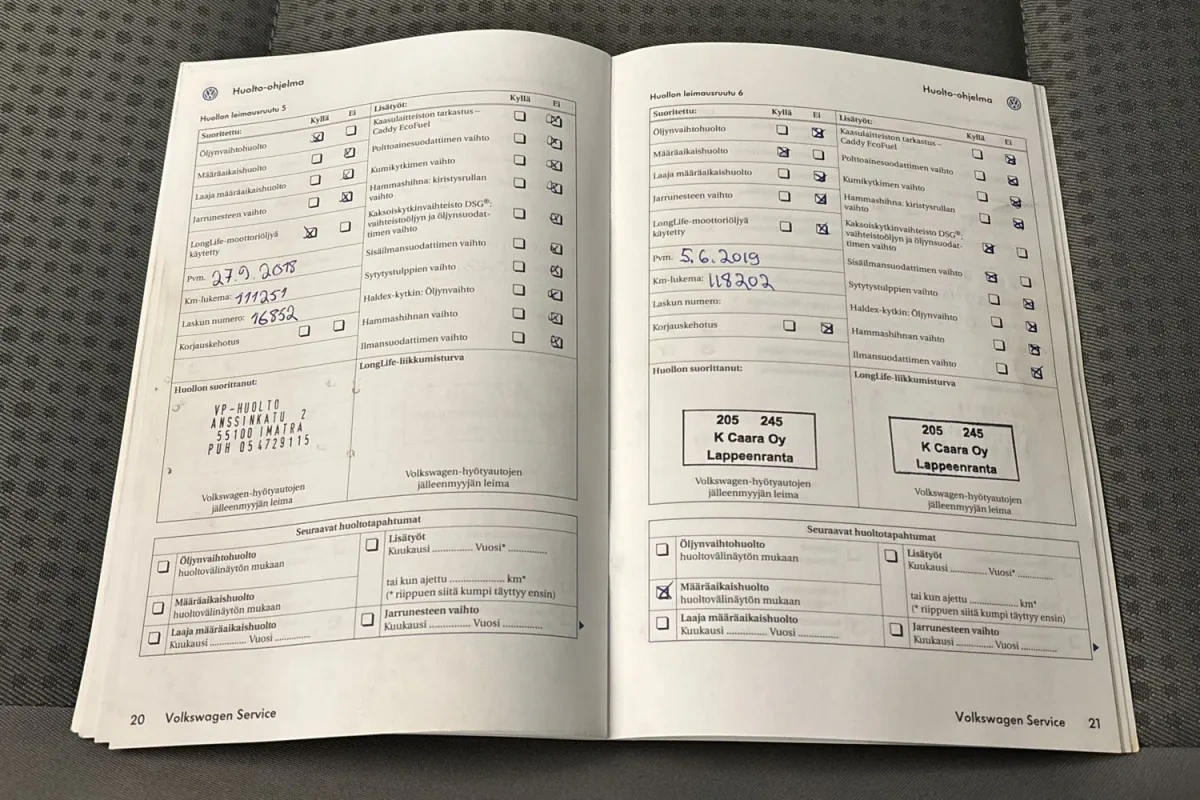 Huolto-ohjelma
Huollon leimausruutu 5
Suoritettu: Kyllä Ei
Öljynvaihtohuolto
Määräaikaishuolto
Laaja määräaikaishuolto
Jarrunesteen vaihto
LongLife-moottoriöljyä
käytetty
Pvm. 27.9.2018
Km-lukema: 111251
Laskun numero: 16852
Korjauskehotus
Lisätyöt: Kyllä Ei
Kaasulaitteiston tarkastus –
Caddy EcoFuel
Polttoainesuodattimen vaihto
Kumikytkimen vaihto
Hammashihna: kiristysrullan
vaihto
Kaksoiskytkinvaihteisto DSG®:
vaihteistoöljyn ja öljynsuodat-
timen vaihto
Sisäilmansuodattimen vaihto
Sytytystulppien vaihto
Haldex-kytkin: Öljynvaihto
Hammashihnan vaihto
Ilmansuodattimen vaihto
Huollon suorittanut:
VP-HUOLTO
ANSSINKATU 2
55100 IMATRA
PUH 054729115
Volkswagen-hyötyautojen
jälleenmyyjän leima
LongLife-liikkumisturva
Volkswagen-hyötyautojen
jälleenmyyjän leima
Seuraavat huoltotapahtumat
Öljynvaihtohuolto
huoltovälinäytön mukaan
Määräaikaishuolto
huoltovälinäytön mukaan
Laaja määräaikaishuolto
Kuukausi .............. Vuosi ..............
Lisätyöt
Kuukausi .............. Vuosi* ..............
tai kun ajettu .................... km*
(* riippuen siitä kumpi täyttyy ensin)
Jarrunesteen vaihto
Kuukausi .............. Vuosi ..............
20 Volkswagen Service
Huolto-ohjelma
Huollon leimausruutu 6
Suoritettu: Kyllä Ei
Öljynvaihtohuolto
Määräaikaishuolto
Laaja määräaikaishuolto
Jarrunesteen vaihto
LongLife-moottoriöljyä
käytetty
Pvm. 5.6.2019
Km-lukema: 118202
Laskun numero:
Korjauskehotus
Lisätyöt: Kyllä Ei
Kaasulaitteiston tarkastus –
Caddy EcoFuel
Polttoainesuodattimen vaihto
Kumikytkimen vaihto
Hammashihna: kiristysrullan
vaihto
Kaksoiskytkinvaihteisto DSG®:
vaihteistoöljyn ja öljynsuodat-
timen vaihto
Sisäilmansuodattimen vaihto
Sytytystulppien vaihto
Haldex-kytkin: Öljynvaihto
Hammashihnan vaihto
Ilmansuodattimen vaihto
Huollon suorittanut:
205 245
K Caara Oy
Lappeenranta
Volkswagen-hyötyautojen
jälleenmyyjän leima
LongLife-liikkumisturva
205 245
K Caara Oy
Lappeenranta
Volkswagen-hyötyautojen
jälleenmyyjän leima
Seuraavat huoltotapahtumat
Öljynvaihtohuolto
huoltovälinäytön mukaan
Määräaikaishuolto
huoltovälinäytön mukaan
Laaja määräaikaishuolto
Kuukausi .............. Vuosi ..............
Lisätyöt
Kuukausi .............. Vuosi* ..............
tai kun ajettu .................... km*
(* riippuen siitä kumpi täyttyy ensin)
Jarrunesteen vaihto
Kuukausi .............. Vuosi ..............
Volkswagen Service 21